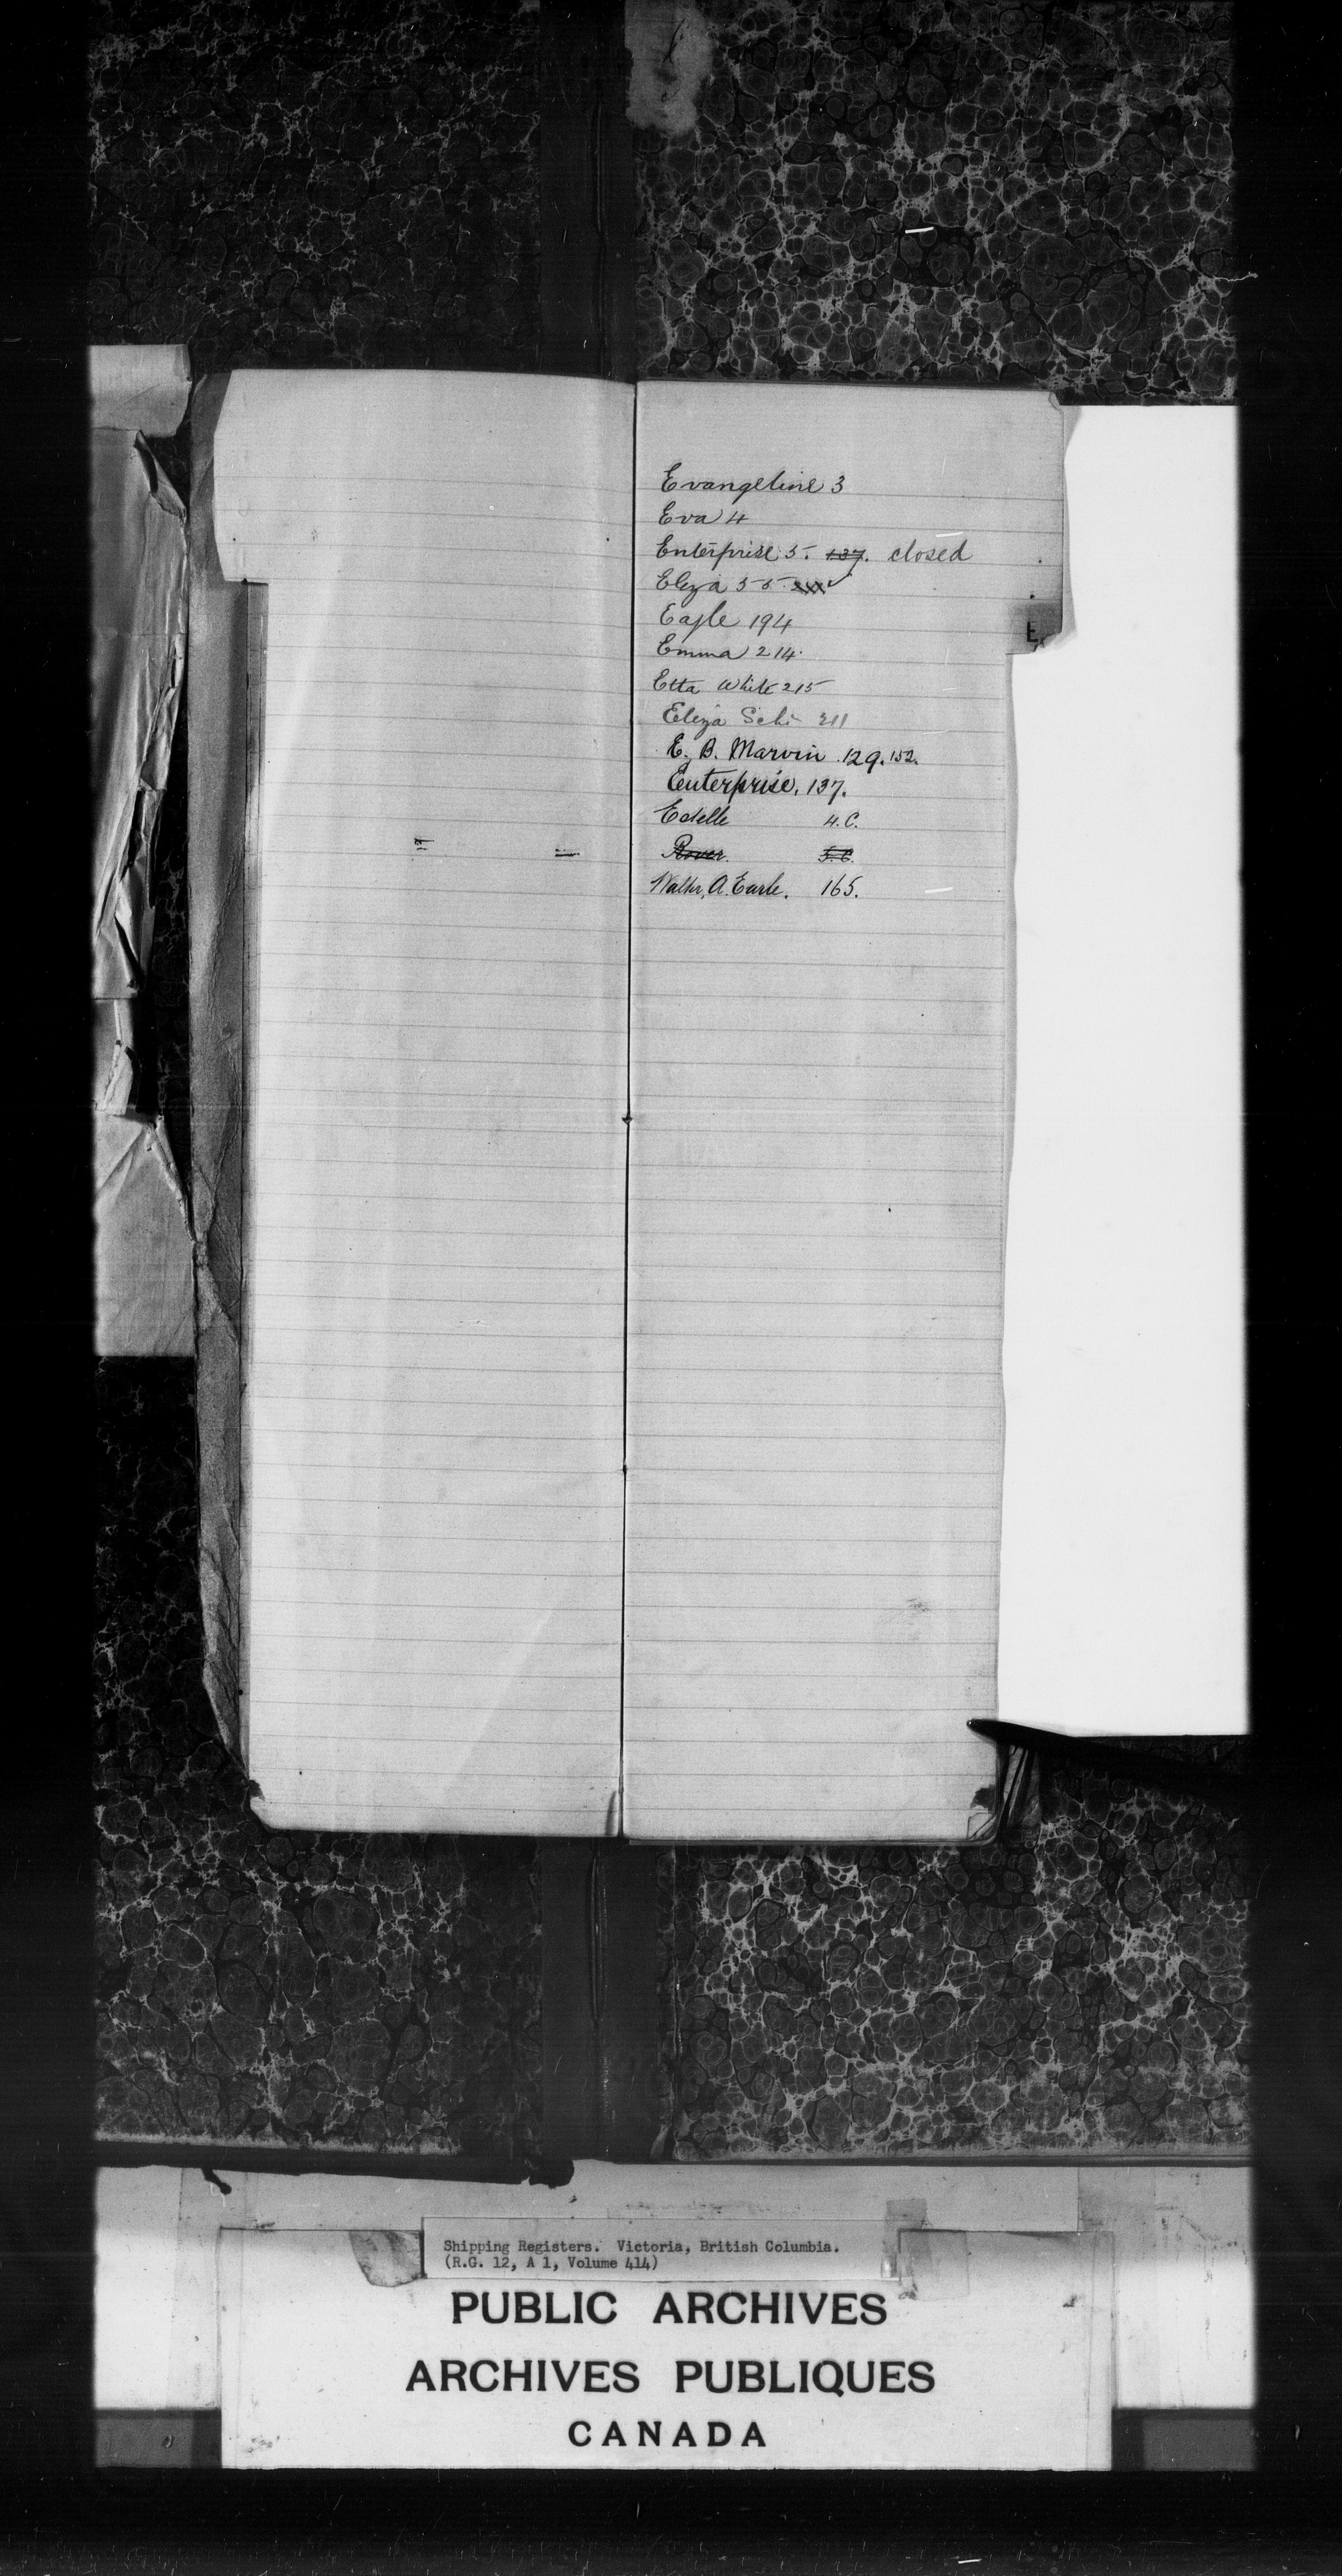 Evangeline 3
Eva 4
Enterprise 5. 137. closed
Eliza 55
Eagle 194
Emma 214.
Etta White 215
Eliza Schr 211
E. B. Marvin 129. 152.
Enterprise. 137.
Estelle 4. C.
Rover. 5. C.
Walter, A. Earle. 165.
E.
Shipping Registers. Victoria, British Columbia.
(R.G. 12, A 1, Volume 414)
PUBLIC ARCHIVES
ARCHIVES PUBLIQUES
CANADA